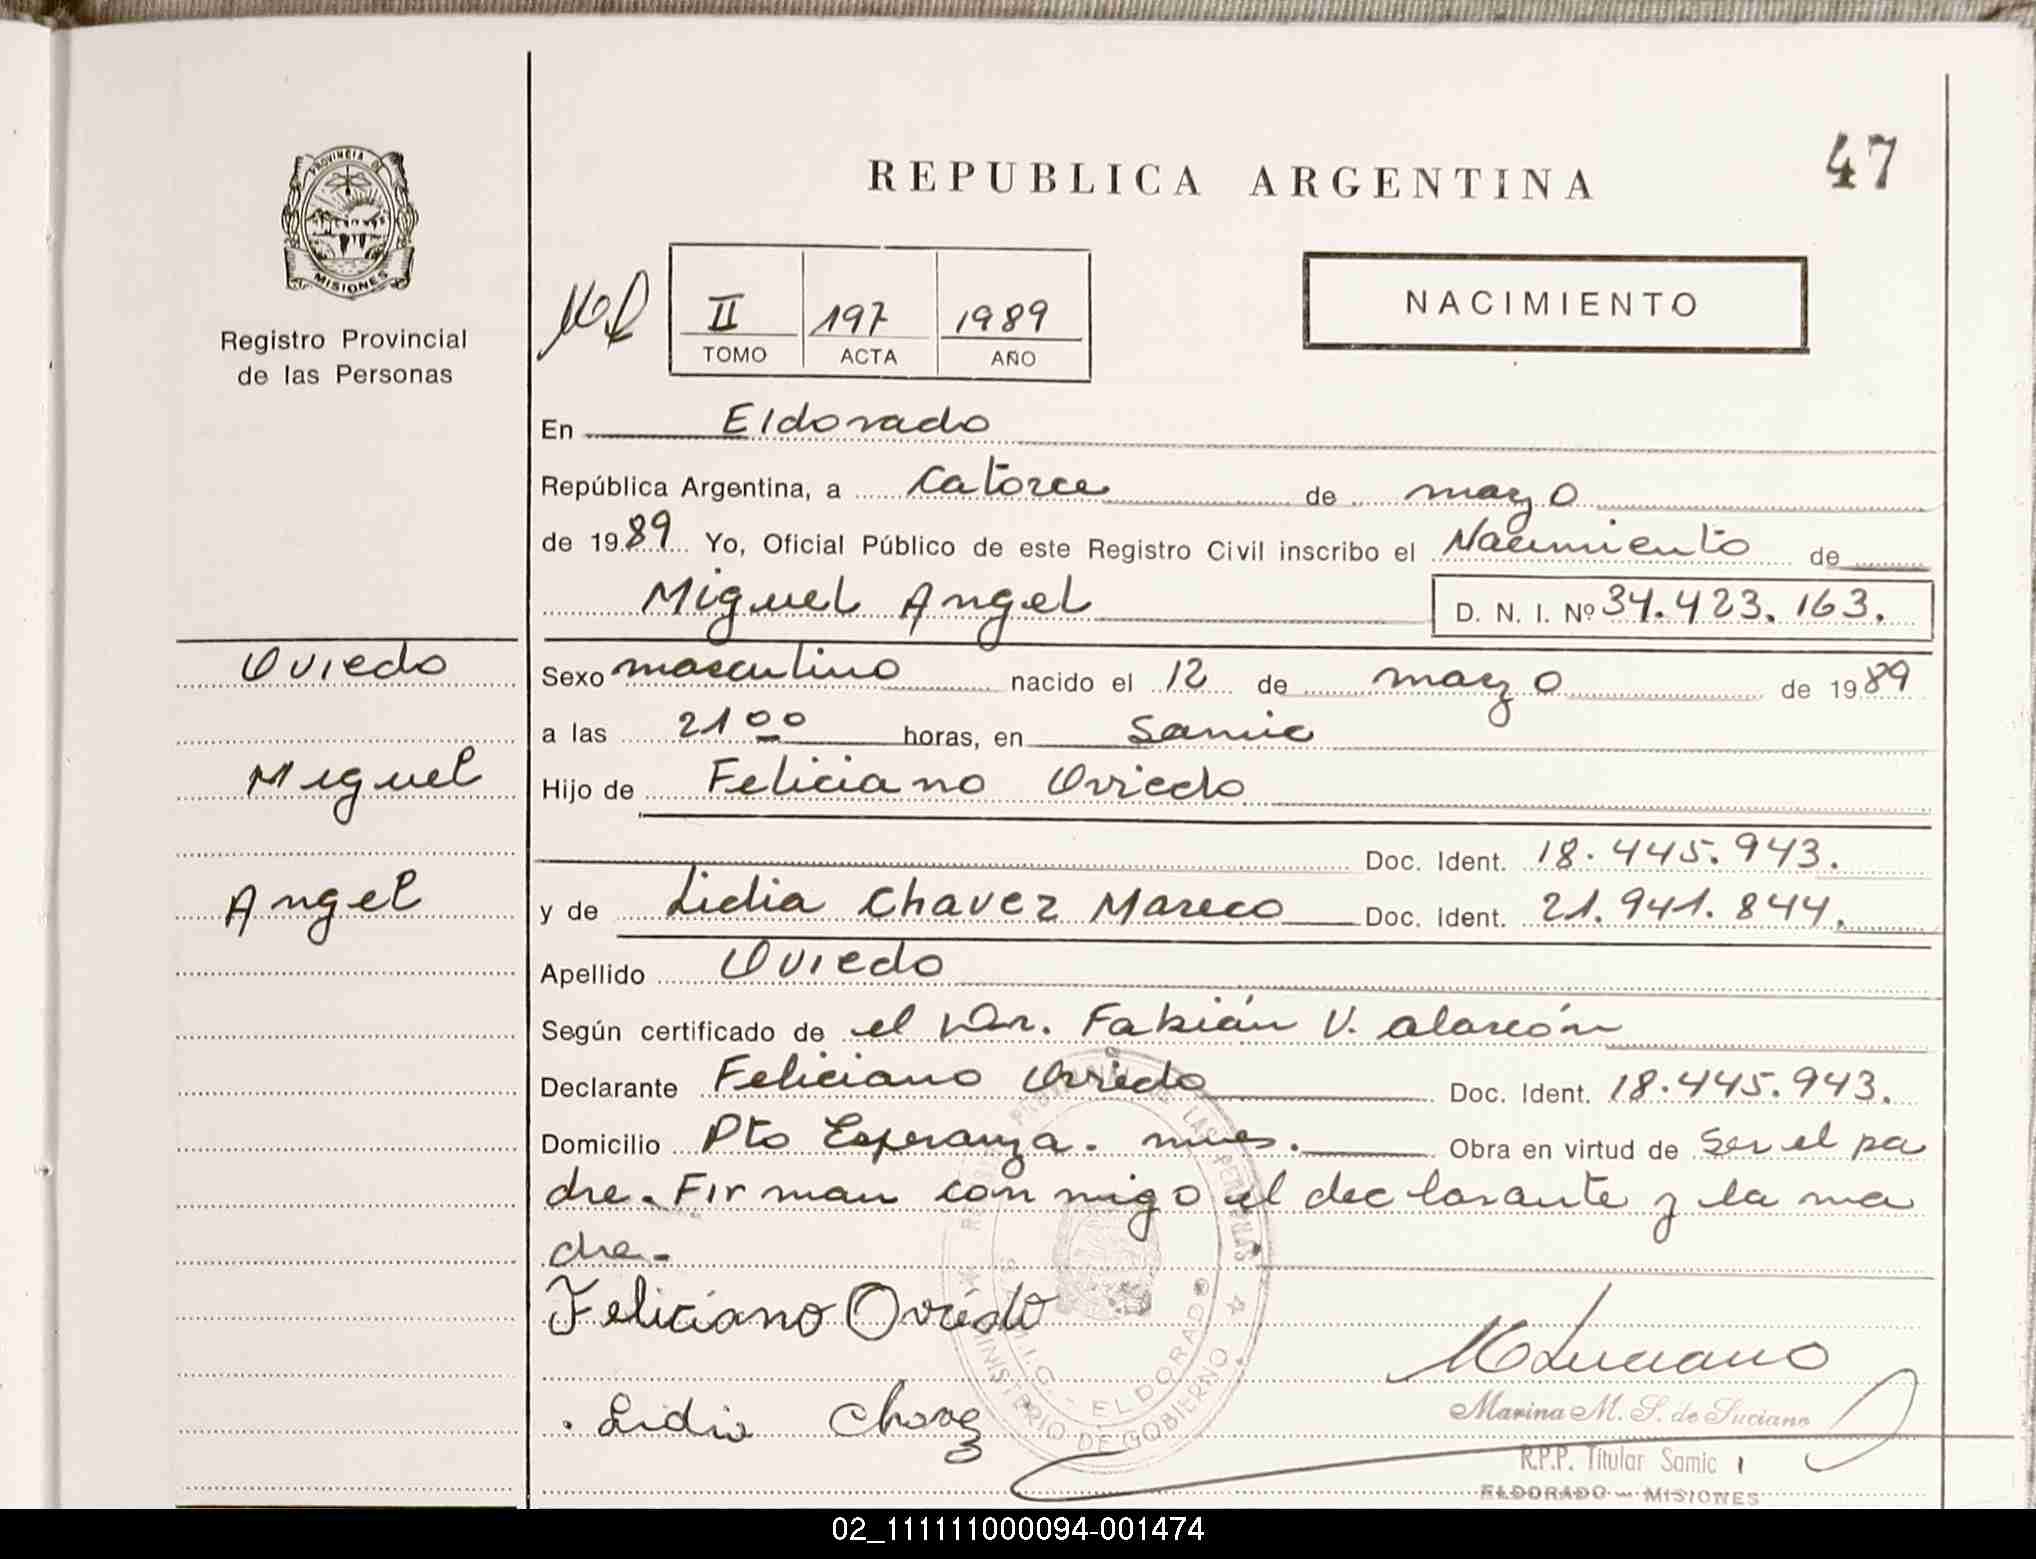 47
REPUBLICA ARGENTINA
PROVINCIA DE
MISIONES
Registro Provincial
de las Personas
II 197 1989
TOMO ACTA AÑO
NACIMIENTO
En Eldorado
República Argentina, a catorce de mayo
de 1989 Yo, Oficial Público de este Registro Civil inscribo el Nacimiento de
Miguel Angel D. N. I. Nº 34.423.163.
Oviedo
Miguel
Angel
Sexo masculino nacido el 12 de mayo de 1989
a las 21 00 horas, en Samic
Hijo de Feliciano Oviedo
Doc. Ident. 18.445.943.
y de Lidia Chavez Mareco Doc. Ident. 21.941.844.
Apellido Oviedo
Según certificado de el Dr. Fabián V. alarcón
Declarante Feliciano Oviedo Doc. Ident. 18.445.943.
Domicilio Pto Esperanza. mnes. Obra en virtud de Ser el pa
dre. Firman conmigo el declarante y la ma
dre.-
Feliciano Oviedo
Lidia Chavez
MLuciano
Marina M. S. de Luciano
R.P.P. Titular Samic
ELDORADO - MISIONES
MINISTERIO DE GOBIERNO
ELDORADO
02_111111000094-001474